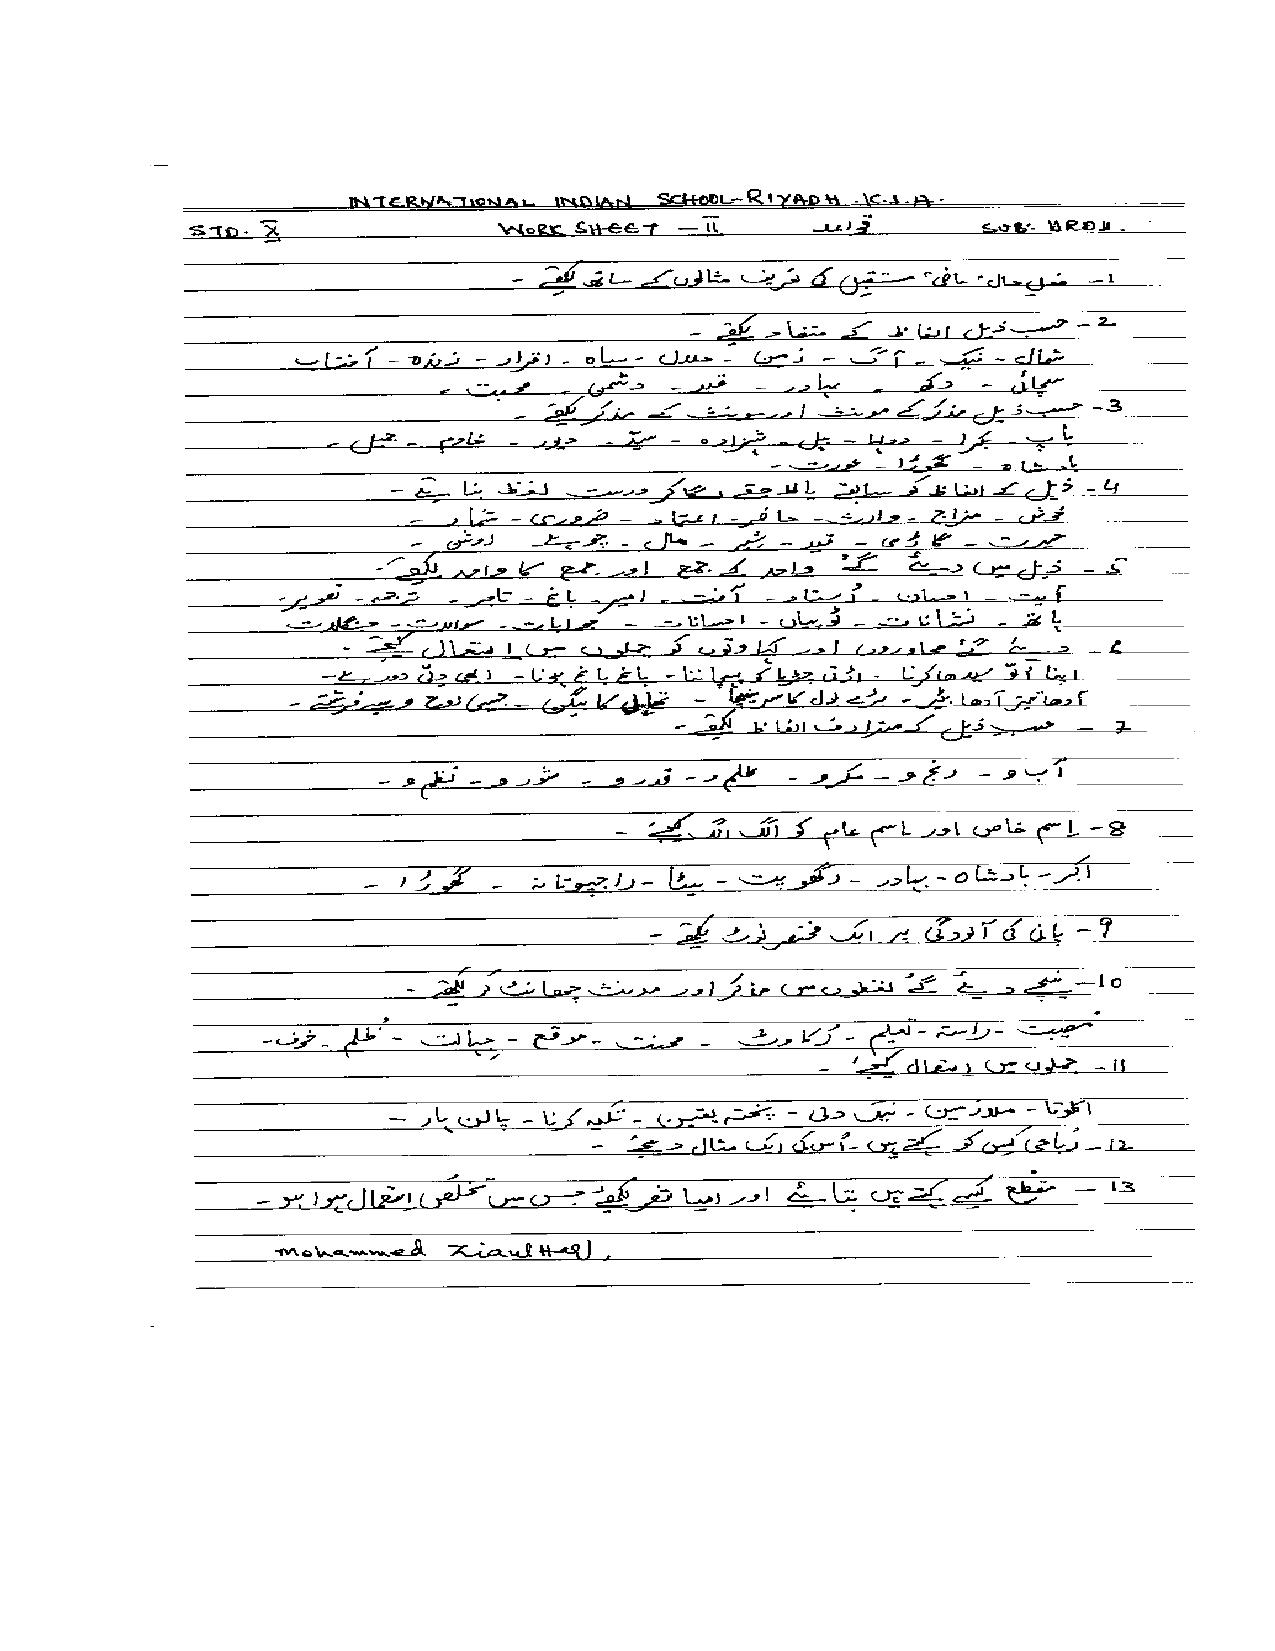 INTERNATIONAL INDIAN SCHOOL-RIYADH.K.S.A.
STD. X WORK SHEET - II قواعد SUB: URDU.
1- فعل حال، ماضی، مستقبل کی تعریف مثالوں کے ساتھ لکھئے -
2- حسب ذیل الفاظ کے متضاد لکھئے -
شمال - نیک - آگ - زمین - حلال - سیاہ - اقرار - زندہ - آفتاب
سچائی - دکھ - بہادر - قید - دشمنی - محبت -
3- حسب ذیل مذکر کے مونث اور مونث کے مذکر لکھئے -
باپ - بکرا - دولہا - بیل - شہزادہ - سیّد - دیور - خادم - جمیل -
بادشاہ - گھوڑا - عورت -
4- ذیل کے الفاظ کو سابقے یا لاحقے لگاکر درست لفظ بنائیے -
خوش - مزاج - وارث - حاضر - اعتماد - ضروری - شمار -
حیرت - گاڑی - قید - شہر - حال - روشنی -
5- ذیل میں دیئے گئے واحد کے جمع اور جمع کا واحد لکھئے -
آیت - احسان - اُستاد - آفت - امیر - باغ - تاجر - ترجمہ - تصویر -
باغ - نشانات - خوبیاں - احسانات - جوابات - سوالات - مشکلات
6- دیئے گئے محاوروں اور کہاوتوں کو جملوں میں استعمال کیجئے -
اپنا اُلّو سیدھا کرنا - اڑتی چڑیا کو پہچاننا - باغ باغ ہونا - ابھی دلّی دور ہے -
آدھا تیتر آدھا بٹیر - بڑے بول کا سر نیچا - تھالی کا بیگن - جیسی روح ویسے فرشتے -
7- حسب ذیل کے مترادف الفاظ لکھئے -
آب و - رنج و - مکر و - علم و - قدر و - شور و - نظم و -
8- اِسم خاص اور اِسم عام کو الگ الگ کیجئے -
اکبر - بادشاہ - بہادر - رگھوپت - بیٹا - راجپوتانہ - گھوڑا -
9- پانی کی آلودگی پر ایک مختصر نوٹ لکھئے -
10- نیچے دیئے گئے لفظوں میں مذکر اور مونث چھانٹ کر لکھئے -
مُصیبت - راستہ - تعلیم - رُکاوٹ - محنت - موقع - جہالت - ظُلم - خوف -
11- جملوں میں استعمال کیجئے -
اکلوتا - ملازمین - نیک دلی - پختہ یقین - تکیہ کرنا - پالن ہار -
12- رُباعی کِس کو کہتے ہیں - اُس کی ایک مثال دیجئے -
13- مقطع کِسے کہتے ہیں بتائیے اور ایسا شعر لکھئے جس میں تخلّص استعمال ہوا ہو -
Mohammed Ziaul Haq.